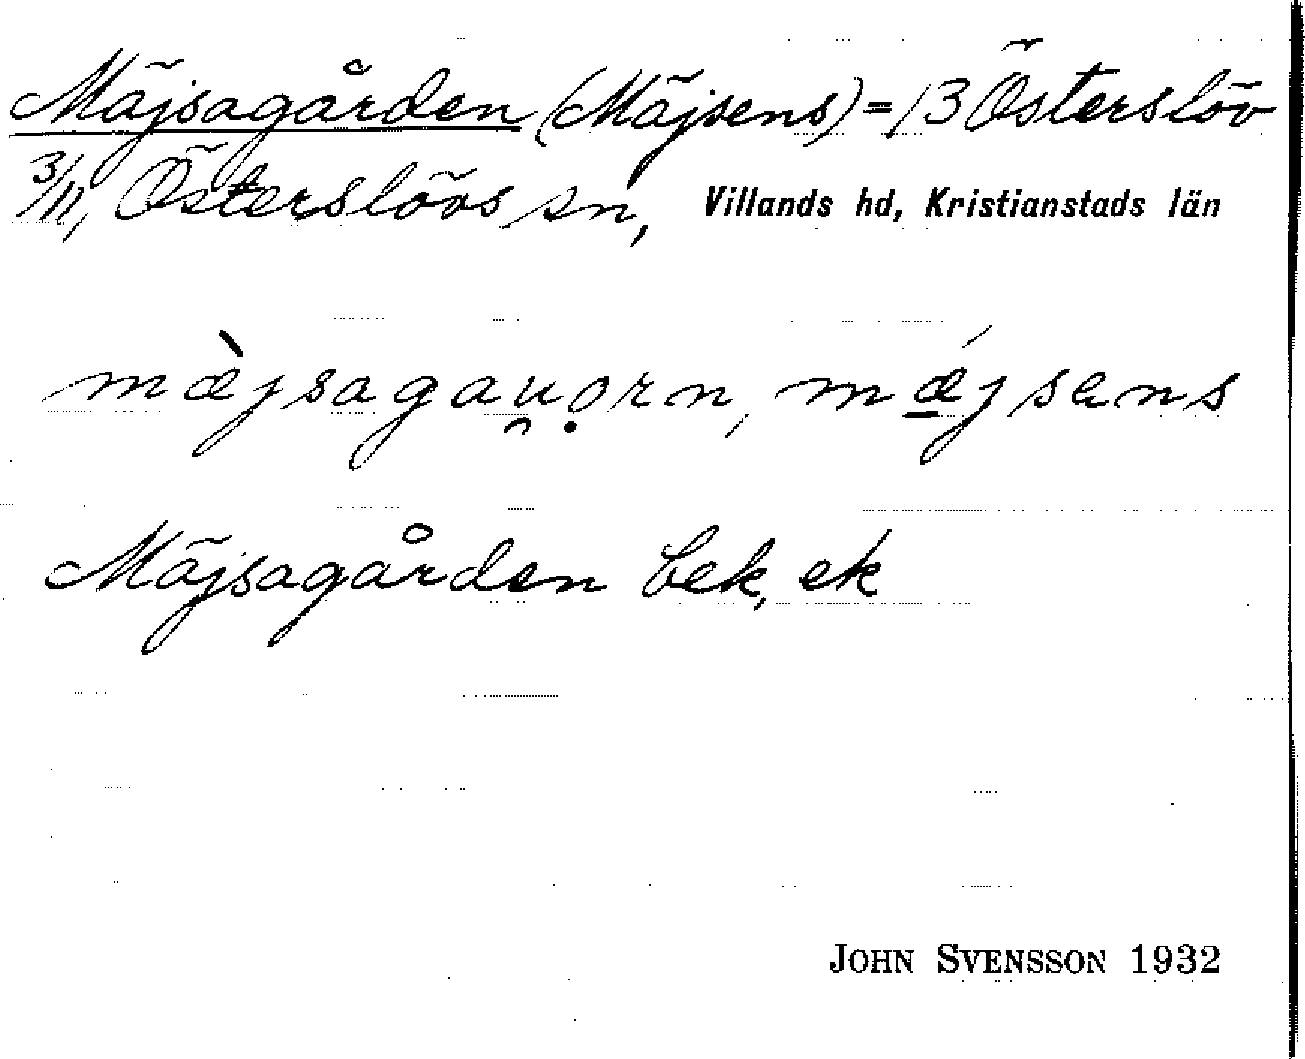 Mäjsagården (Mäjsens) = 13 Österslöv
3/11, Österslövs sn, Villands hd, Kristianstads län
mæ̀jsagau̯ọrn, mǽ̱jsens
Mäjsagården bek, ek
JOHN SVENSSON 1932